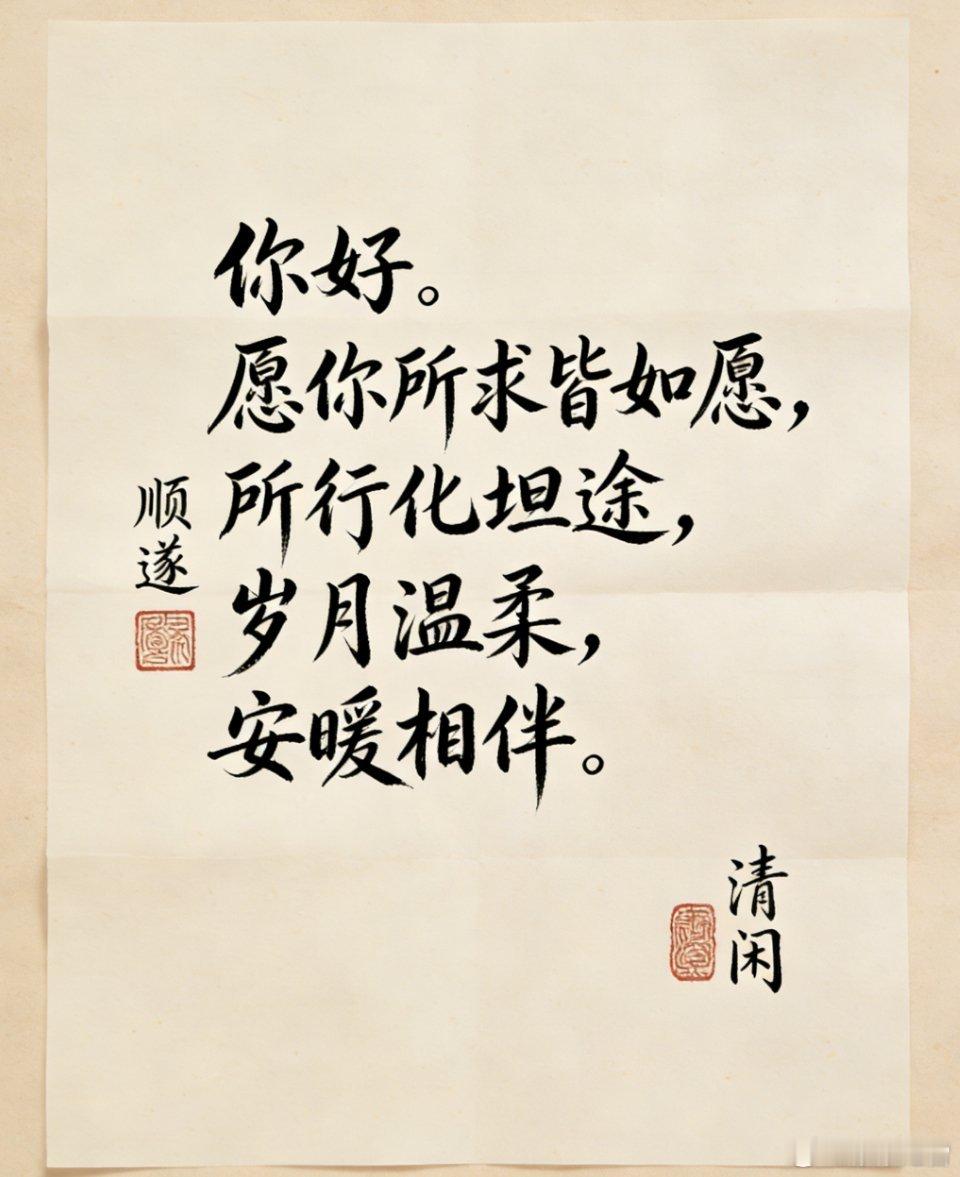 你好。
愿你所求皆如愿，
所行化坦途，
岁月温柔，
安暖相伴。
顺遂
清闲